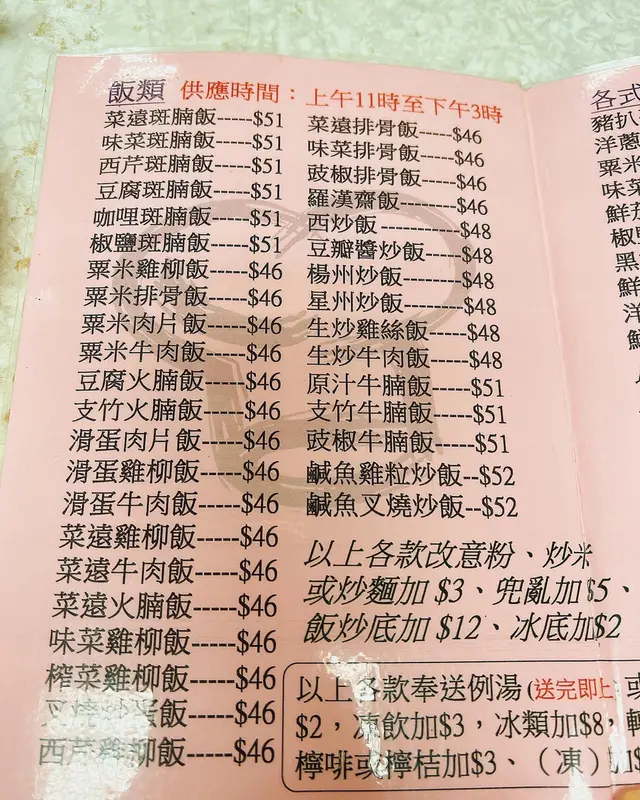 飯類 供應時間：上午11時至下午3時
菜遠斑腩飯-----$51
味菜斑腩飯-----$51
西芹斑腩飯-----$51
豆腐斑腩飯-----$51
咖哩斑腩飯-----$51
椒鹽斑腩飯-----$51
粟米雞柳飯-----$46
粟米排骨飯-----$46
粟米肉片飯-----$46
粟米牛肉飯-----$46
豆腐火腩飯-----$46
支竹火腩飯-----$46
滑蛋肉片飯-----$46
滑蛋雞柳飯-----$46
滑蛋牛肉飯-----$46
菜遠雞柳飯-----$46
菜遠牛肉飯-----$46
菜遠火腩飯-----$46
味菜雞柳飯-----$46
榨菜雞柳飯-----$46
叉燒炒蛋飯-----$46
西芹雞柳飯-----$46
菜遠排骨飯-----$46
味菜排骨飯-----$46
豉椒排骨飯-----$46
羅漢齋飯-----$46
西炒飯--------$48
豆瓣醬炒飯----$48
楊州炒飯------$48
星州炒飯------$48
生炒雞絲飯----$48
生炒牛肉飯----$48
原汁牛腩飯----$51
支竹牛腩飯----$51
豉椒牛腩飯----$51
鹹魚雞粒炒飯--$52
鹹魚叉燒炒飯--$52
以上各款改意粉、炒米
或炒麵加 $3、兜亂加$5、
飯炒底加 $12、冰底加$2
以上各款奉送例湯(送完即止)或
$2，凍飲加$3，冰類加$8，
檸啡或檸桔加$3、（凍）加$
各式
豬扒
洋蔥
粟米
味菜
鮮茄
椒鹽
黑
鮮
洋